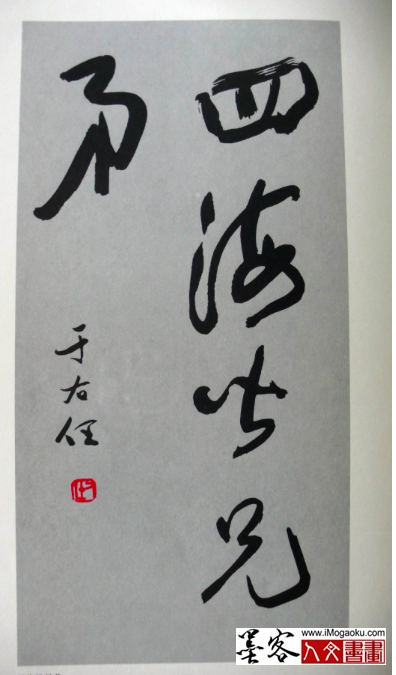 四海皆兄
弟
于右任
墨客
www.iMogaoku.com
人文書畫